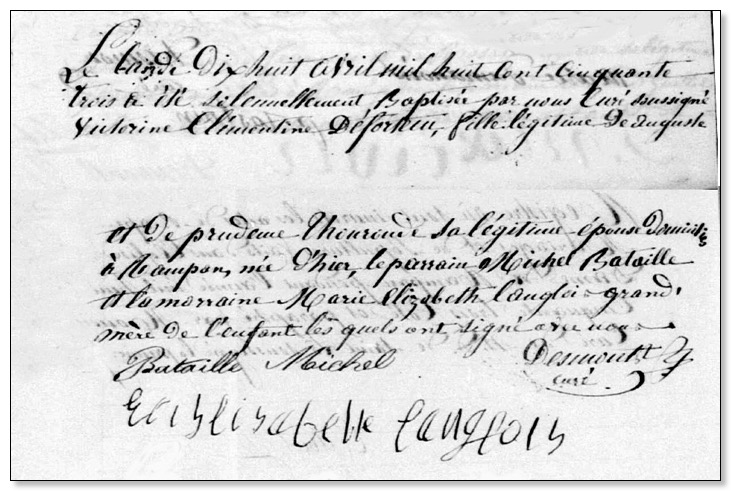 Le lundi Dix huit avril mil huit cent cinquante
trois a été solennellement Baptisée par nous Curé soussigné
Victorine Clémentine fille légitime De auguste
et De prudence sa légitime épouse
à Rampan, née d'hier, le parrain Michel Bataille
Et la marraine Marie Elizabeth Langlois grand
mère de l'enfant les quels ont signé avec nous
Bataille Michel
curé
Langlois